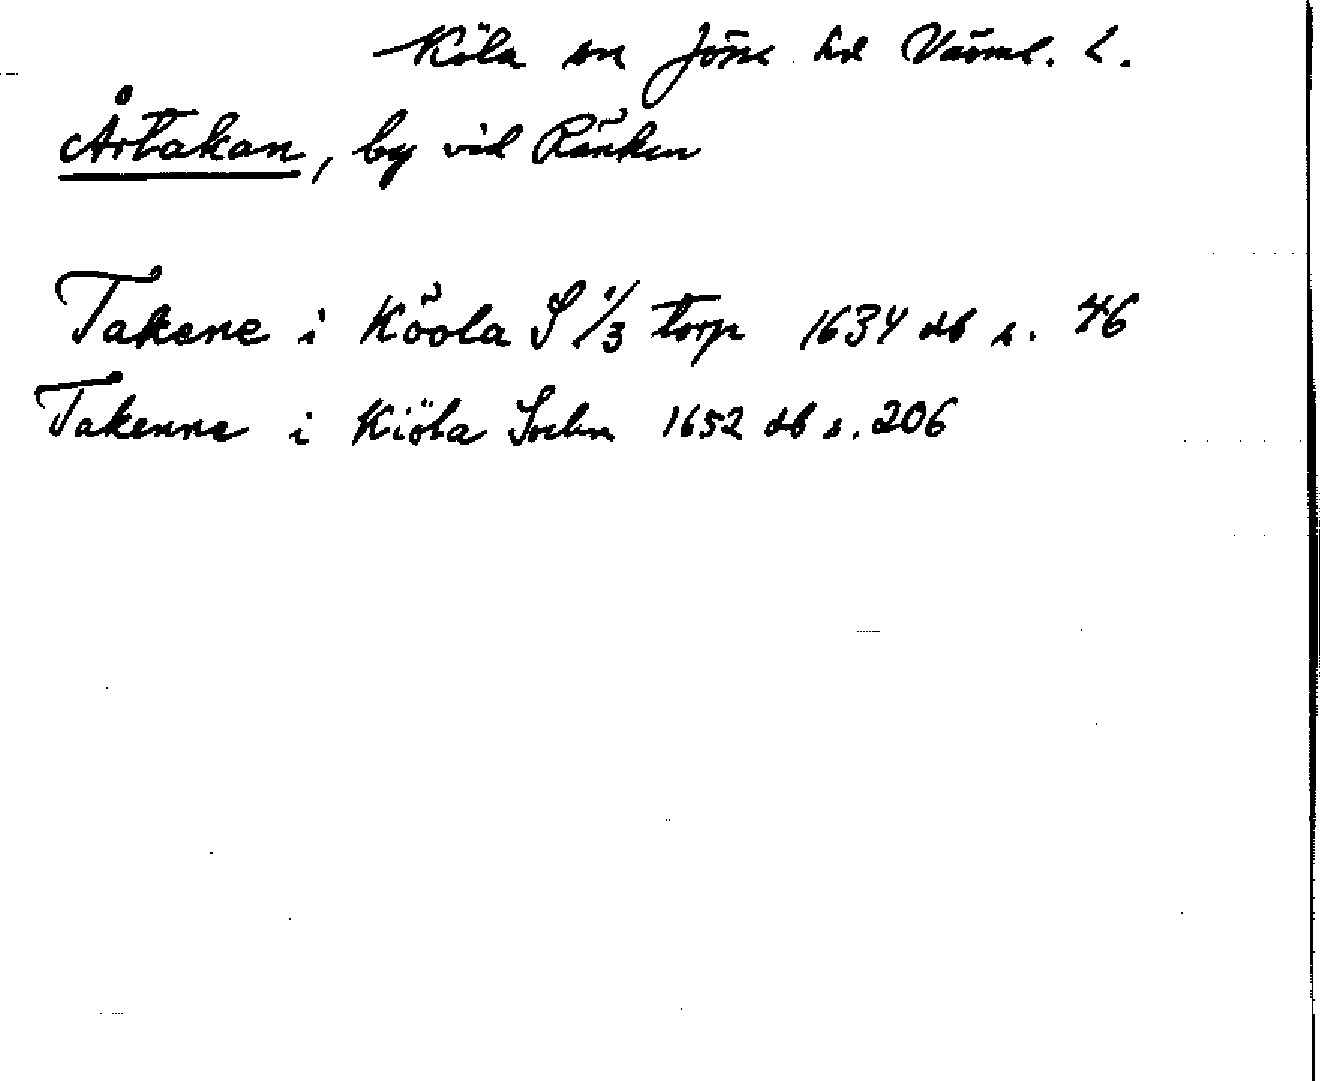 Köla sn Jösse hd Värml. L.
Årtakan, by vid Ränken
Takene i Köola S 1/3 torp 1634 db s. 46
Takenne i Kiöla Sochn 1652 db s. 206